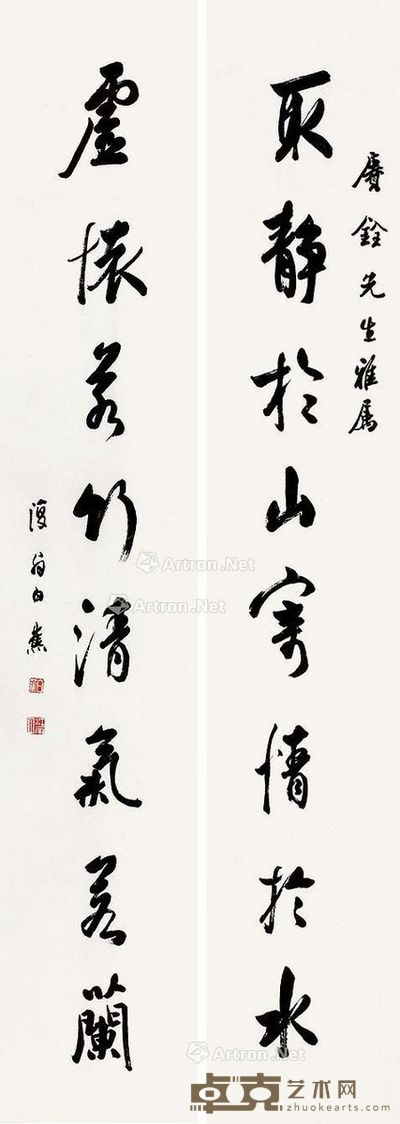 賡銓先生雅属
取静於山寄情於水
虚懷若竹清氣若蘭
復翁白蕉
Artron.Net
Artron.Net
Artron.Net
Artron.Net
卓克艺术网
zhuokearts.com